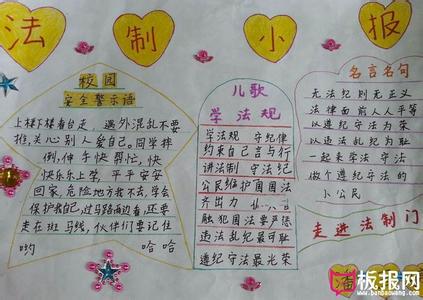 法制小报
校园
安全警示语
上楼下楼看台走，遇外混乱不要
推，关心别人爱自己。同学摔
倒，伸手快帮忙，快
快乐乐上学，平平安安
回家，危险地方我不去，学会
保护我自己，过马路两边看，还要
走在斑马线，伙伴们要记住
哟 哈哈
儿歌
学法规
学法规 守纪律
约束自己言与行
讲法制 守法纪
公民维护国国法
齐出力
触犯国法要严惩
违法乱纪最可耻
遵纪守法最光荣
名言名句
无法纪则无正义
法律面前人人平等
以遵纪守法为荣
以违法乱纪为耻
一起来学法守法
做个遵纪守法的
小公民
走进法制门
板报网
www.banbaowang.com